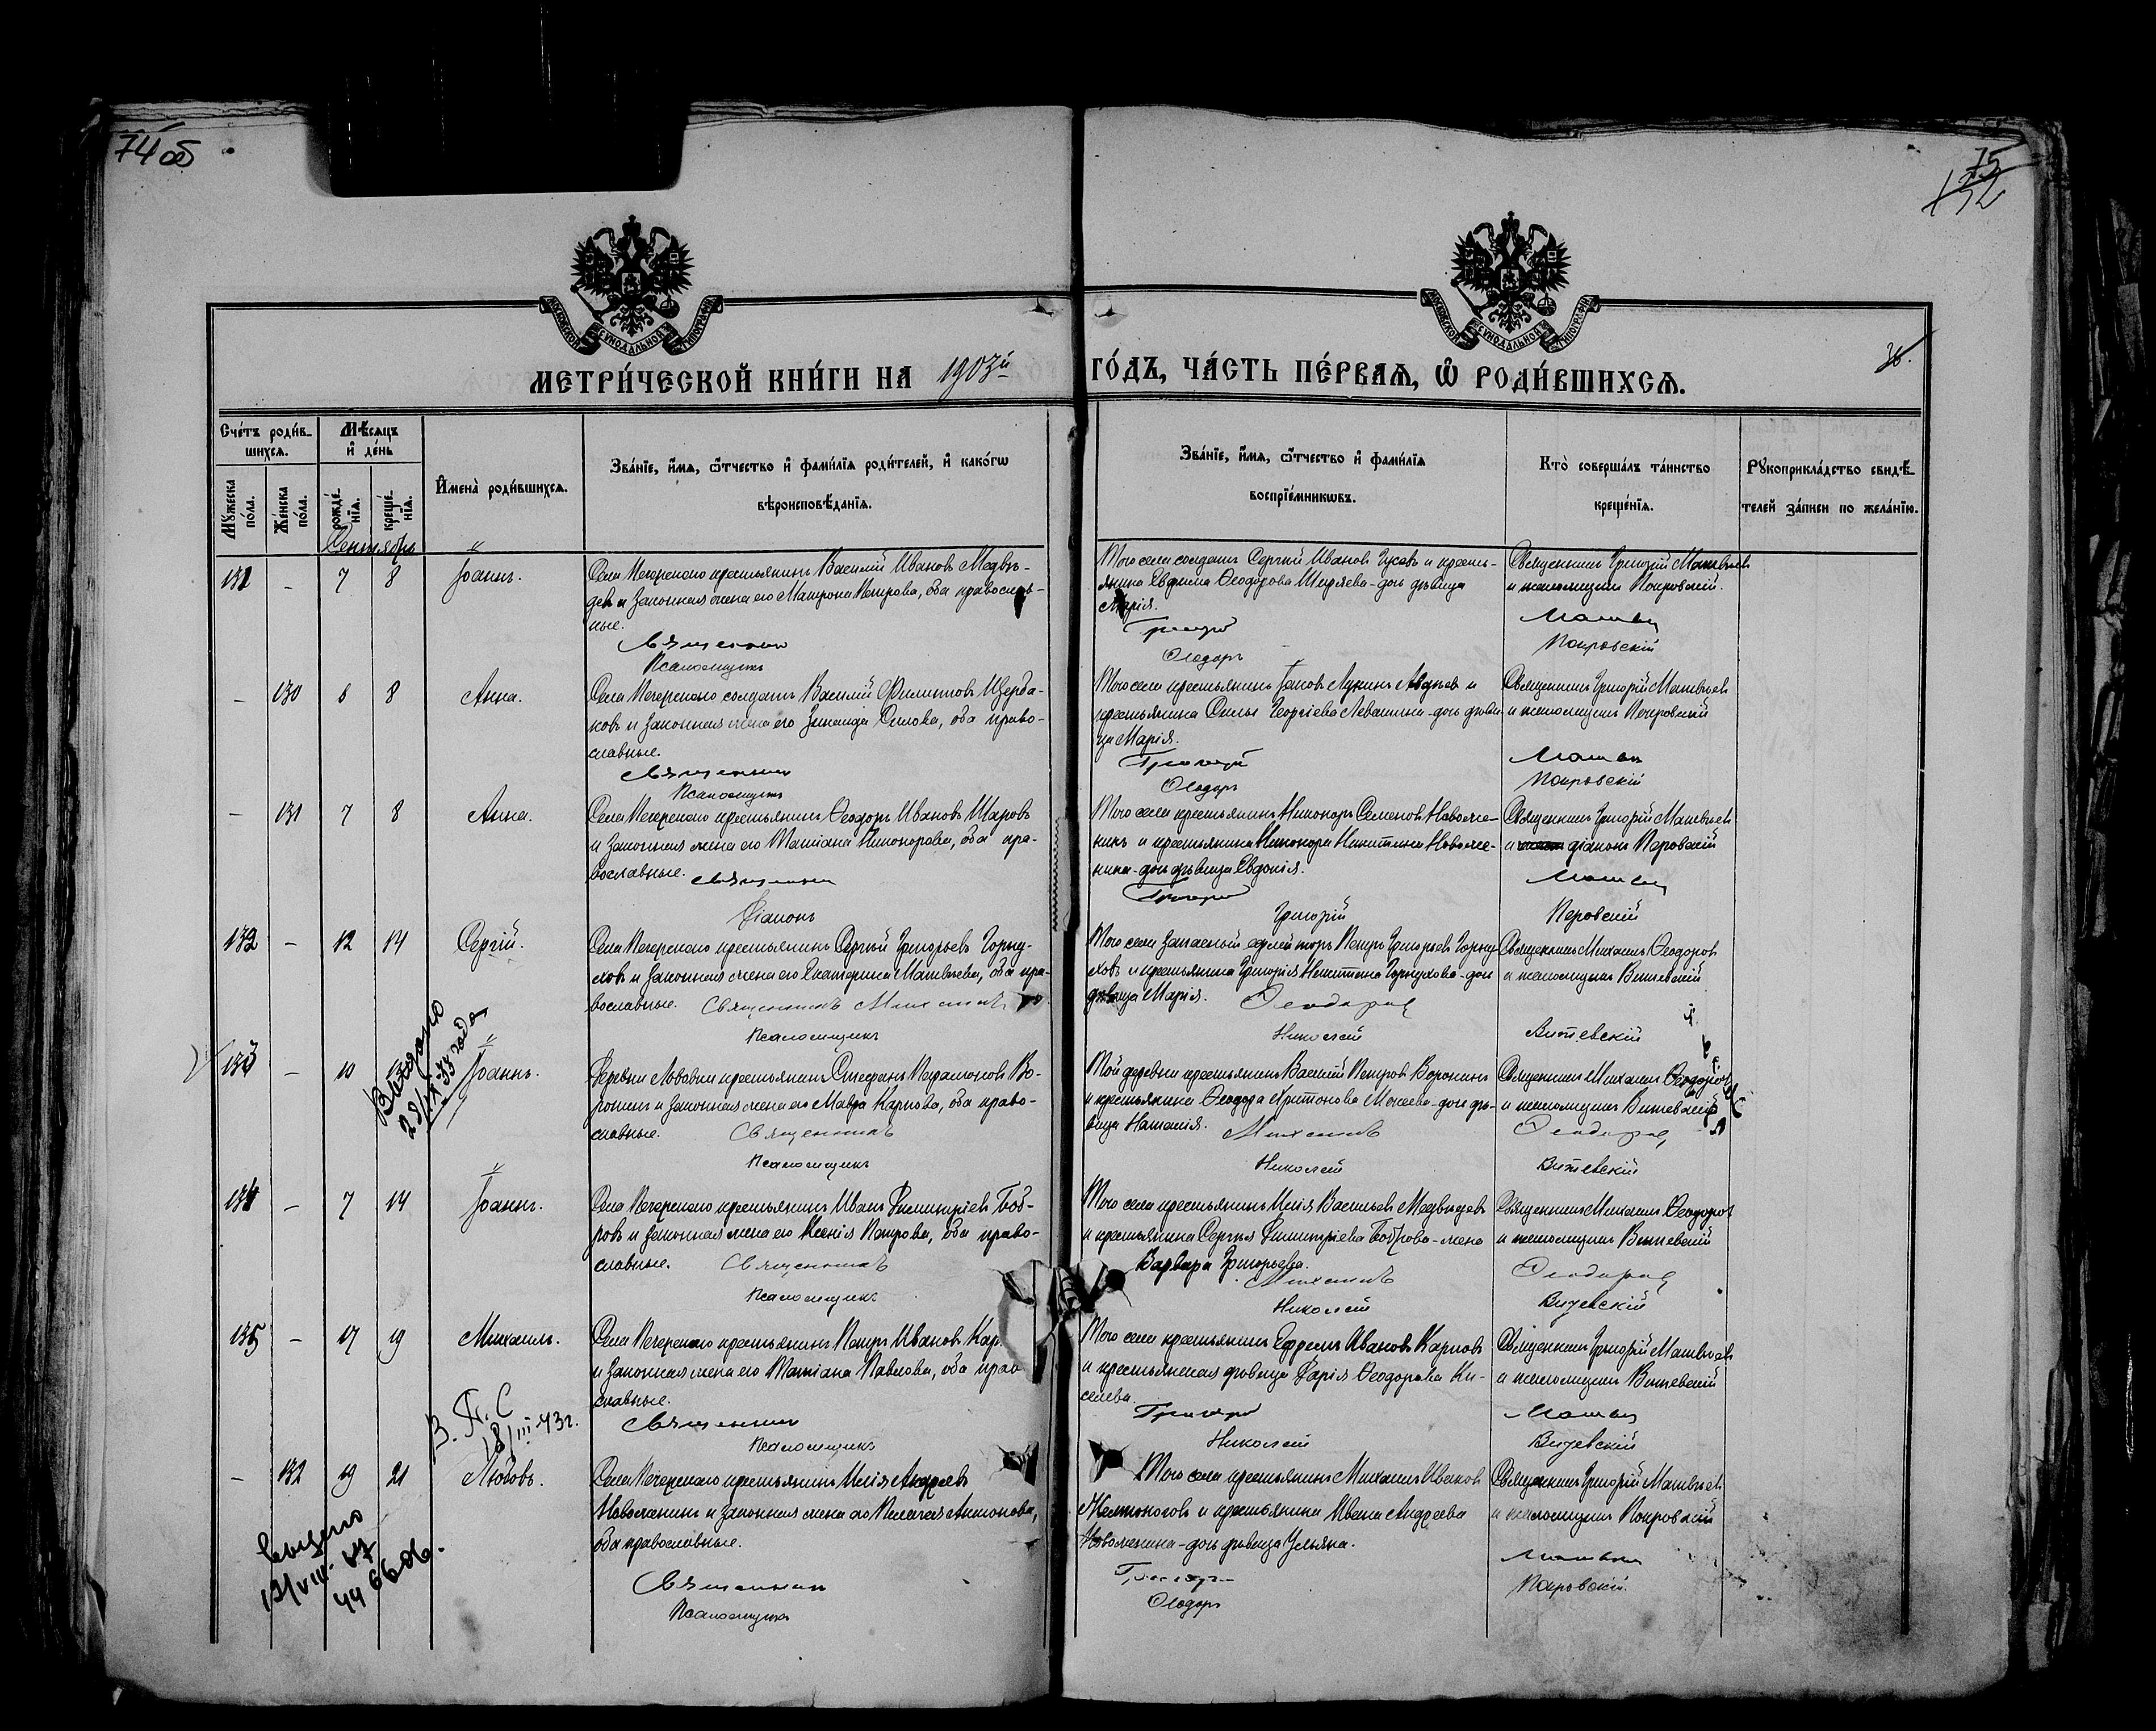 74 об
75
132
МОСКОВСКОЙ СΥНОДАЛЬНОЙ ТИПОГРАФІИ
МОСКОВСКОЙ СΥНОДАЛЬНОЙ ТИПОГРАФІИ
МЕТРИ́ЧЕСКОЙ КНИ́ГИ НА 1903й ГО́ДЪ, ЧА́СТЬ ПЕ́РВАѦ, Ѡ РОДИ́ВШИХСѦ.
36.
Сче́тъ роди́в-
шихсѧ.
Мѣ́сѧцъ
и҆ де́нь
Му́жеска по́ла.
Же́нска по́ла.
рожде́-
нїѧ.
креще́-
нїѧ.
И҆мена̀ роди́вшихсѧ.
Зва́нїе, и҆́мѧ, ѻ҆́тчество и҆ фами́лїѧ роди́телей, и҆ како́гѡ
вѣроисповѣ́данїѧ.
Зва́нїе, и҆́мѧ, ѻ҆́тчество и҆ фами́лїѧ
воспрїе́мникѡвъ.
Кто̀ соверша́лъ та́инство
креще́нїѧ.
Рꙋкоприкла́дство свидѣ́-
телей за́писи по жела́нїю.
Сентябрь
131 – 7 8 Іоаннъ.
Села Печерскаго крестьянинъ Василій Ивановъ Медвѣ-
девъ и законная жена его Матрона Петрова, оба православ-
ные.
Священникъ
Псаломщикъ
Того села солдатъ Сергій Ивановъ Гусевъ и кресть-
янина Евфима Ѳеодорова Ширяева - дочь дѣвица
Марія.
Григорій
Ѳеодоръ
Священникъ Григорій Матвѣевъ
и псаломщикъ Покровскій.
Матвѣев
Покровскій
– 130 6 8 Анна.
Села Печерскаго солдатъ Василій Филиповъ Щерба-
ковъ и законная жена его Зинаида, оба право-
славные.
Священникъ
Псаломщикъ
Того села крестьянинъ Іаковъ Лукинъ Авдѣевъ и
крестьянина Силы Георгіева Левашина - дочь дѣви-
ца Марія.
Григорій
Ѳеодоръ
Священникъ Григорій Матвѣевъ
и псаломщикъ Покровскій
Матвѣев
Покровскій
– 131 7 8 Анна.
Села Печерскаго крестьянинъ Ѳеодоръ Ивановъ Шаровъ
и законная жена его Татіана Никонорова, оба пра-
вославные.
Священникъ
Діаконъ
Того села крестьянинъ Никоноръ Семеновъ Новоже-
нинъ и крестьянина Никонора Никитина Новоже-
нина - дочь дѣвица Евдокія.
Григорій
Григорій
Священникъ Григорій Матвѣевъ
и діаконъ Перовскій
Матвѣев
Перовскій
132 – 12 14 Сергій.
Села Печерскаго крестьянинъ Сергій Григорьевъ Горну-
ховъ и законная жена его Екатерина Матвѣева, оба пра-
вославные.
Священникъ Михаилъ
Псаломщикъ
Того села запасный Петръ Григорьевъ Горну-
ховъ и крестьянина Григорія Никитина Горнухова - дочь
дѣвица Марія.
Ѳеодоров
Николай
Священникъ Михаилъ Ѳеодоровъ
и псаломщикъ Витевскій
Витевскій
133 – 10 Іоаннъ.
Выдано
28/IX 33 года
Деревни Лобовки крестьянинъ Стефанъ Парамоновъ Во-
ронинъ и законная жена его Мавра Карпова, оба право-
славные.
Священникъ
Псаломщикъ
Той деревни крестьянинъ Василій Петровъ Воронинъ
и крестьянина Ѳеодора Харитонова Мокеева - дочь дѣ-
вица Наталія.
Михаилъ
Николай
Священникъ Михаилъ Ѳеодоровъ
и псаломщикъ Витевскій
Ѳеодоров
Витевскій
134 – 7 14 Іоаннъ.
Села Печерскаго крестьянинъ Иванъ Димитріевъ Боб-
ровъ и законная жена его Ксенія Петрова, оба право-
славные.
Священникъ
Псаломщикъ
Того села крестьянинъ Илія Васильевъ Медвѣдевъ
и крестьянина Сергія Димитріева Боброва - жена
Варвара Григорьева.
Михаилъ
Николай
Священникъ Михаилъ Ѳеодоровъ
и псаломщикъ Витевскій
Ѳеодоров
Витевскій
135 – 17 19 Михаилъ.
Села Печерскаго крестьянинъ Петръ Ивановъ Кар
и законная жена его Татіана Павлова, оба прав
славные.
Священникъ
Псаломщикъ
Того села крестьянинъ Ефремъ Ивановъ Карповъ
и крестьянская дѣвица Дарія Ѳеодорова Ки-
селева.
Григорій
Николай
Священникъ Григорій Матвѣевъ
и псаломщикъ Витевскій
Матвѣев
Витевскій
В. П. С
18/III-43г.
– 132 19 21 Любовь.
Села Печерскаго крестьянинъ Илія Андреевъ
Новоженинъ и законная жена его Пелагея Антонова,
оба православные.
Священникъ
Псаломщикъ
Того села крестьянинъ Михаилъ Ивановъ
Желтоноговъ и крестьянина Ивана Андреева
Новоженина - дочь дѣвица Ульяна.
Ѳеодоръ
Священникъ Григорій Матвѣевъ
и псаломщикъ Покровскій
Матвѣев
Покровскій.